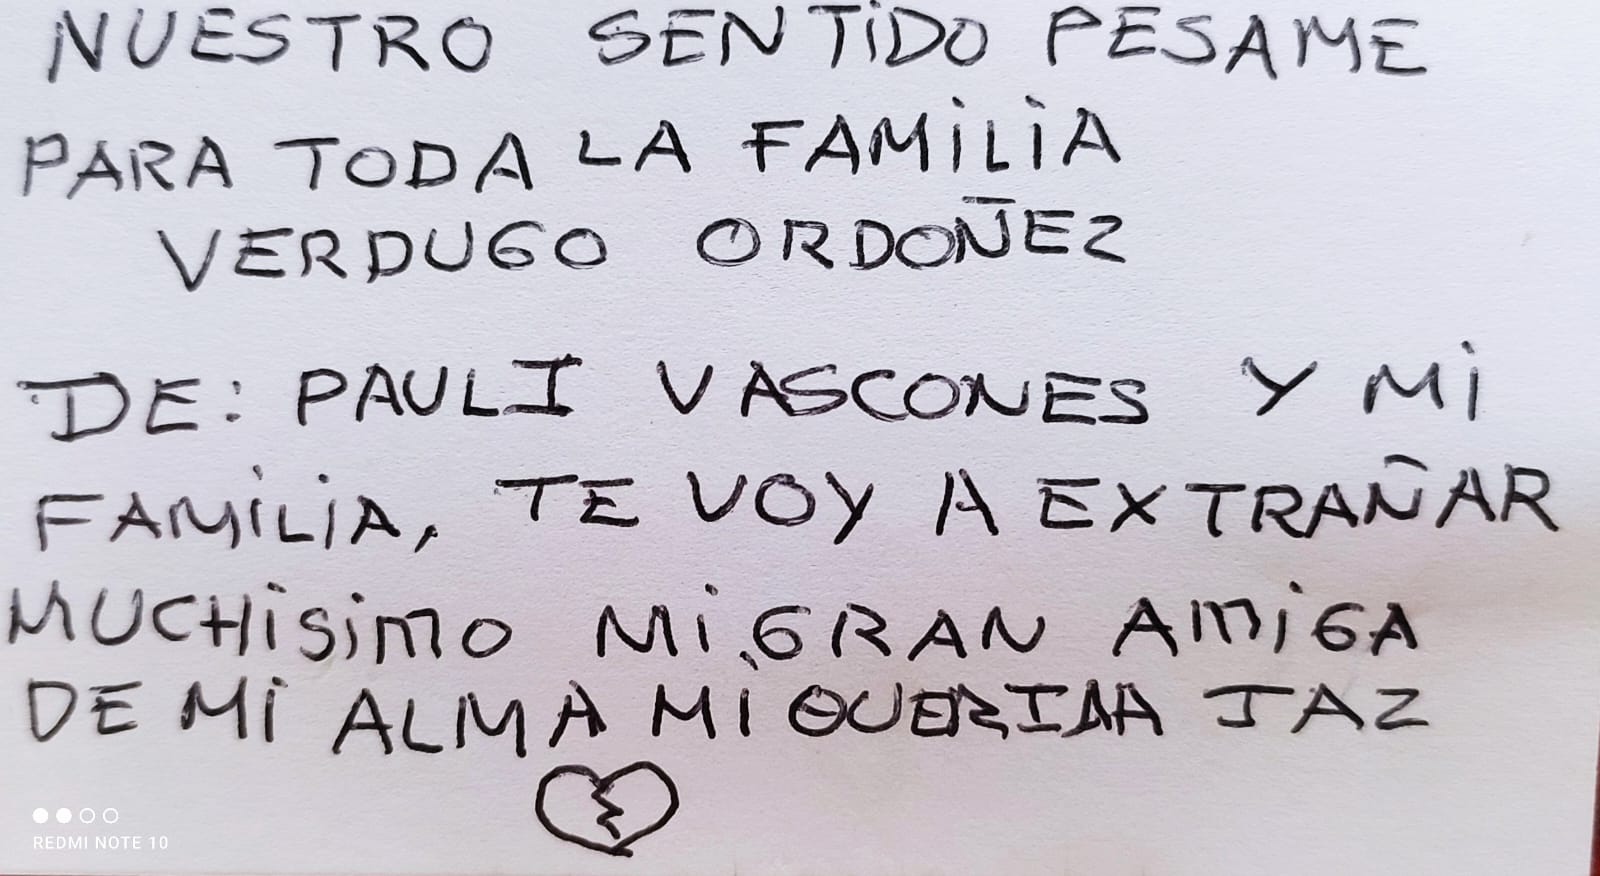 NUESTRO SENTIDO PESAME
PARA TODA LA FAMILIA
VERDUGO ORDOÑEZ
DE: PAULI VASCONES Y MI
FAMILIA, TE VOY A EXTRAÑAR
MUCHISIMO MI GRAN AMIGA
DE MI ALMA MI QUERIDA JAZ
REDMI NOTE 10